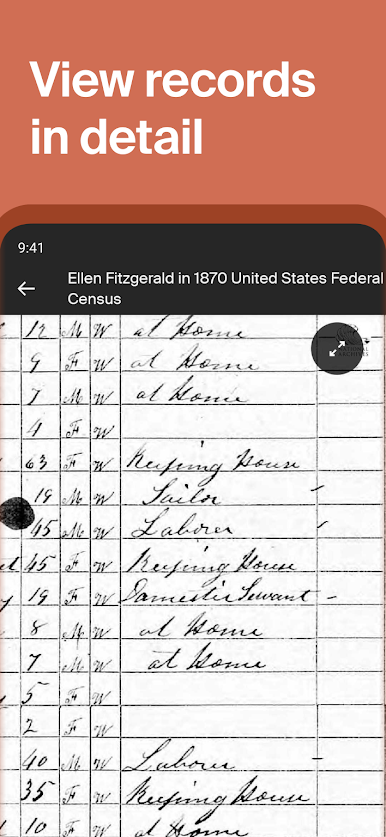 View records
in detail
9:41
Ellen Fitzgerald in 1870 United States Federal
Census
12 M W at Home
9 F W at Home
7 M W at Home
4 F W
63 F W Keeping House
19 M W Sailor
45 M W Laborer
45 F W Keeping House
19 F W Domestic Servant -
8 M W at Home
7 M W at Home
5 F W
2 F W
40 M W Laborer
35 F W Keeping House
10 F W at Home